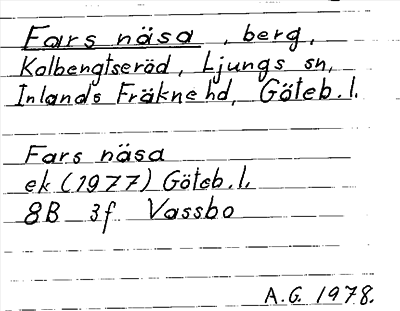 Fars näsa, berg,
Kolbengtseröd, Ljungs sn,
Inlands Fräkne hd, Göteb.l.
Fars näsa
ek (1977) Göteb.l.
8B 3f Vassbo
A.G. 1978.